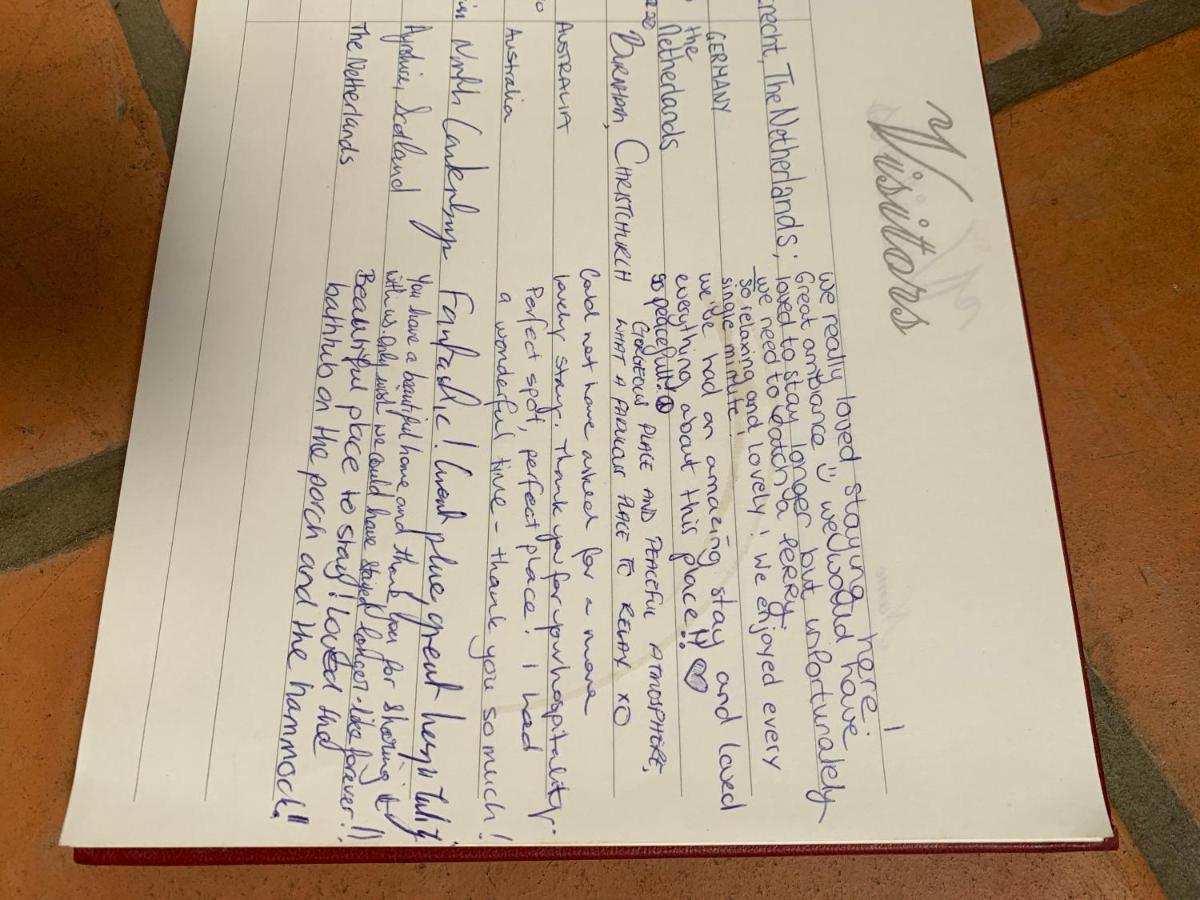 Visitors
recht, The Netherlands;
we really loved staying here!
Great ambiance :) we would have
loved to stay longer but unfortunately
we need to catch a ferry.
GERMANY
so relaxing and lovely! We enjoyed every
single minute!
the
Netherlands
we've had an amazing stay and loved
everything about this place!! ♡
so peacefull!
BURNHAM, CHRISTCHURCH
GORGEOUS PLACE AND PEACEFUL ATMOSPHERE,
WHAT A FABULOUS PLACE TO RELAX XO
AUSTRALIA
Could not have asked for a more
lovely stay. Thank you for your hospitality.
Australia
Perfect spot, perfect place! I had
a wonderful time - thank you so much!
North Canterbury
Fantastic! Great place, great hospitality
Ayrshire, Scotland
You have a beautiful home and thank you for sharing it
with us. Only wish we could have stayed longer - like forever!!
The Netherlands
Beautiful place to stay! Loved the
bathtub on the porch and the hammock!!